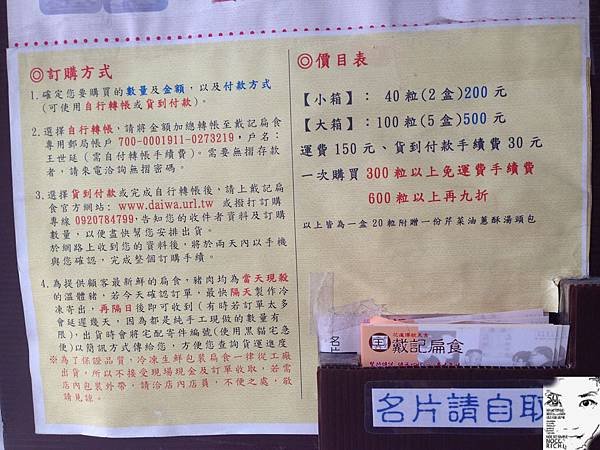 ◎訂購方式
1. 確定您要購買的數量及金額，以及付款方式
(可使用自行轉帳或貨到付款)。
2. 選擇自行轉帳，請將金額加總轉帳至戴記扁食
專用郵局帳戶 700-0001911-0273219，戶名：
王世延 (需自付轉帳手續費)。需要無摺存款
者，請來電洽詢無摺密碼。
3. 選擇貨到付款或完成自行轉帳後，請上戴記扁
食官方網站: www.daiwa.url.tw 或撥打訂購
專線 0920784799，告知您的收件者資料及訂購
數量，以便盡快幫您安排出貨。
於網路上收到您的資料後，將於兩天內以手機
與您確認，完成整個訂購手續。
4. 為提供顧客最新鮮的扁食，豬肉均為當天現殺
的溫體豬，若今天確認訂單，最快隔天製作冷
凍寄出，再隔日後即可收到 (有時若訂單太多
會延遲幾天，因為都是純手工現做的數量有
限)，出貨時會將宅配寄件編號(使用黑貓宅急
便)以簡訊方式傳給您，方便您查詢貨運進度
※為了保證品質，冷凍生鮮包裝扁食一律從工廠
出貨，所以不接受現場現金及訂單收取，若需
店內包裝外帶，請洽店內店員，不便之處，敬
請見諒。
◎價目表
【小箱】： 40 粒(2 盒)200 元
【大箱】： 100 粒(5 盒)500 元
運費 150 元、貨到付款手續費 30 元
一次購買 300 粒以上免運費手續費
600 粒以上再九折
以上皆為一盒 20 粒附贈一份芹菜油蔥酥湯頭包
花蓮傳統美食
戴記扁食
名片請自取